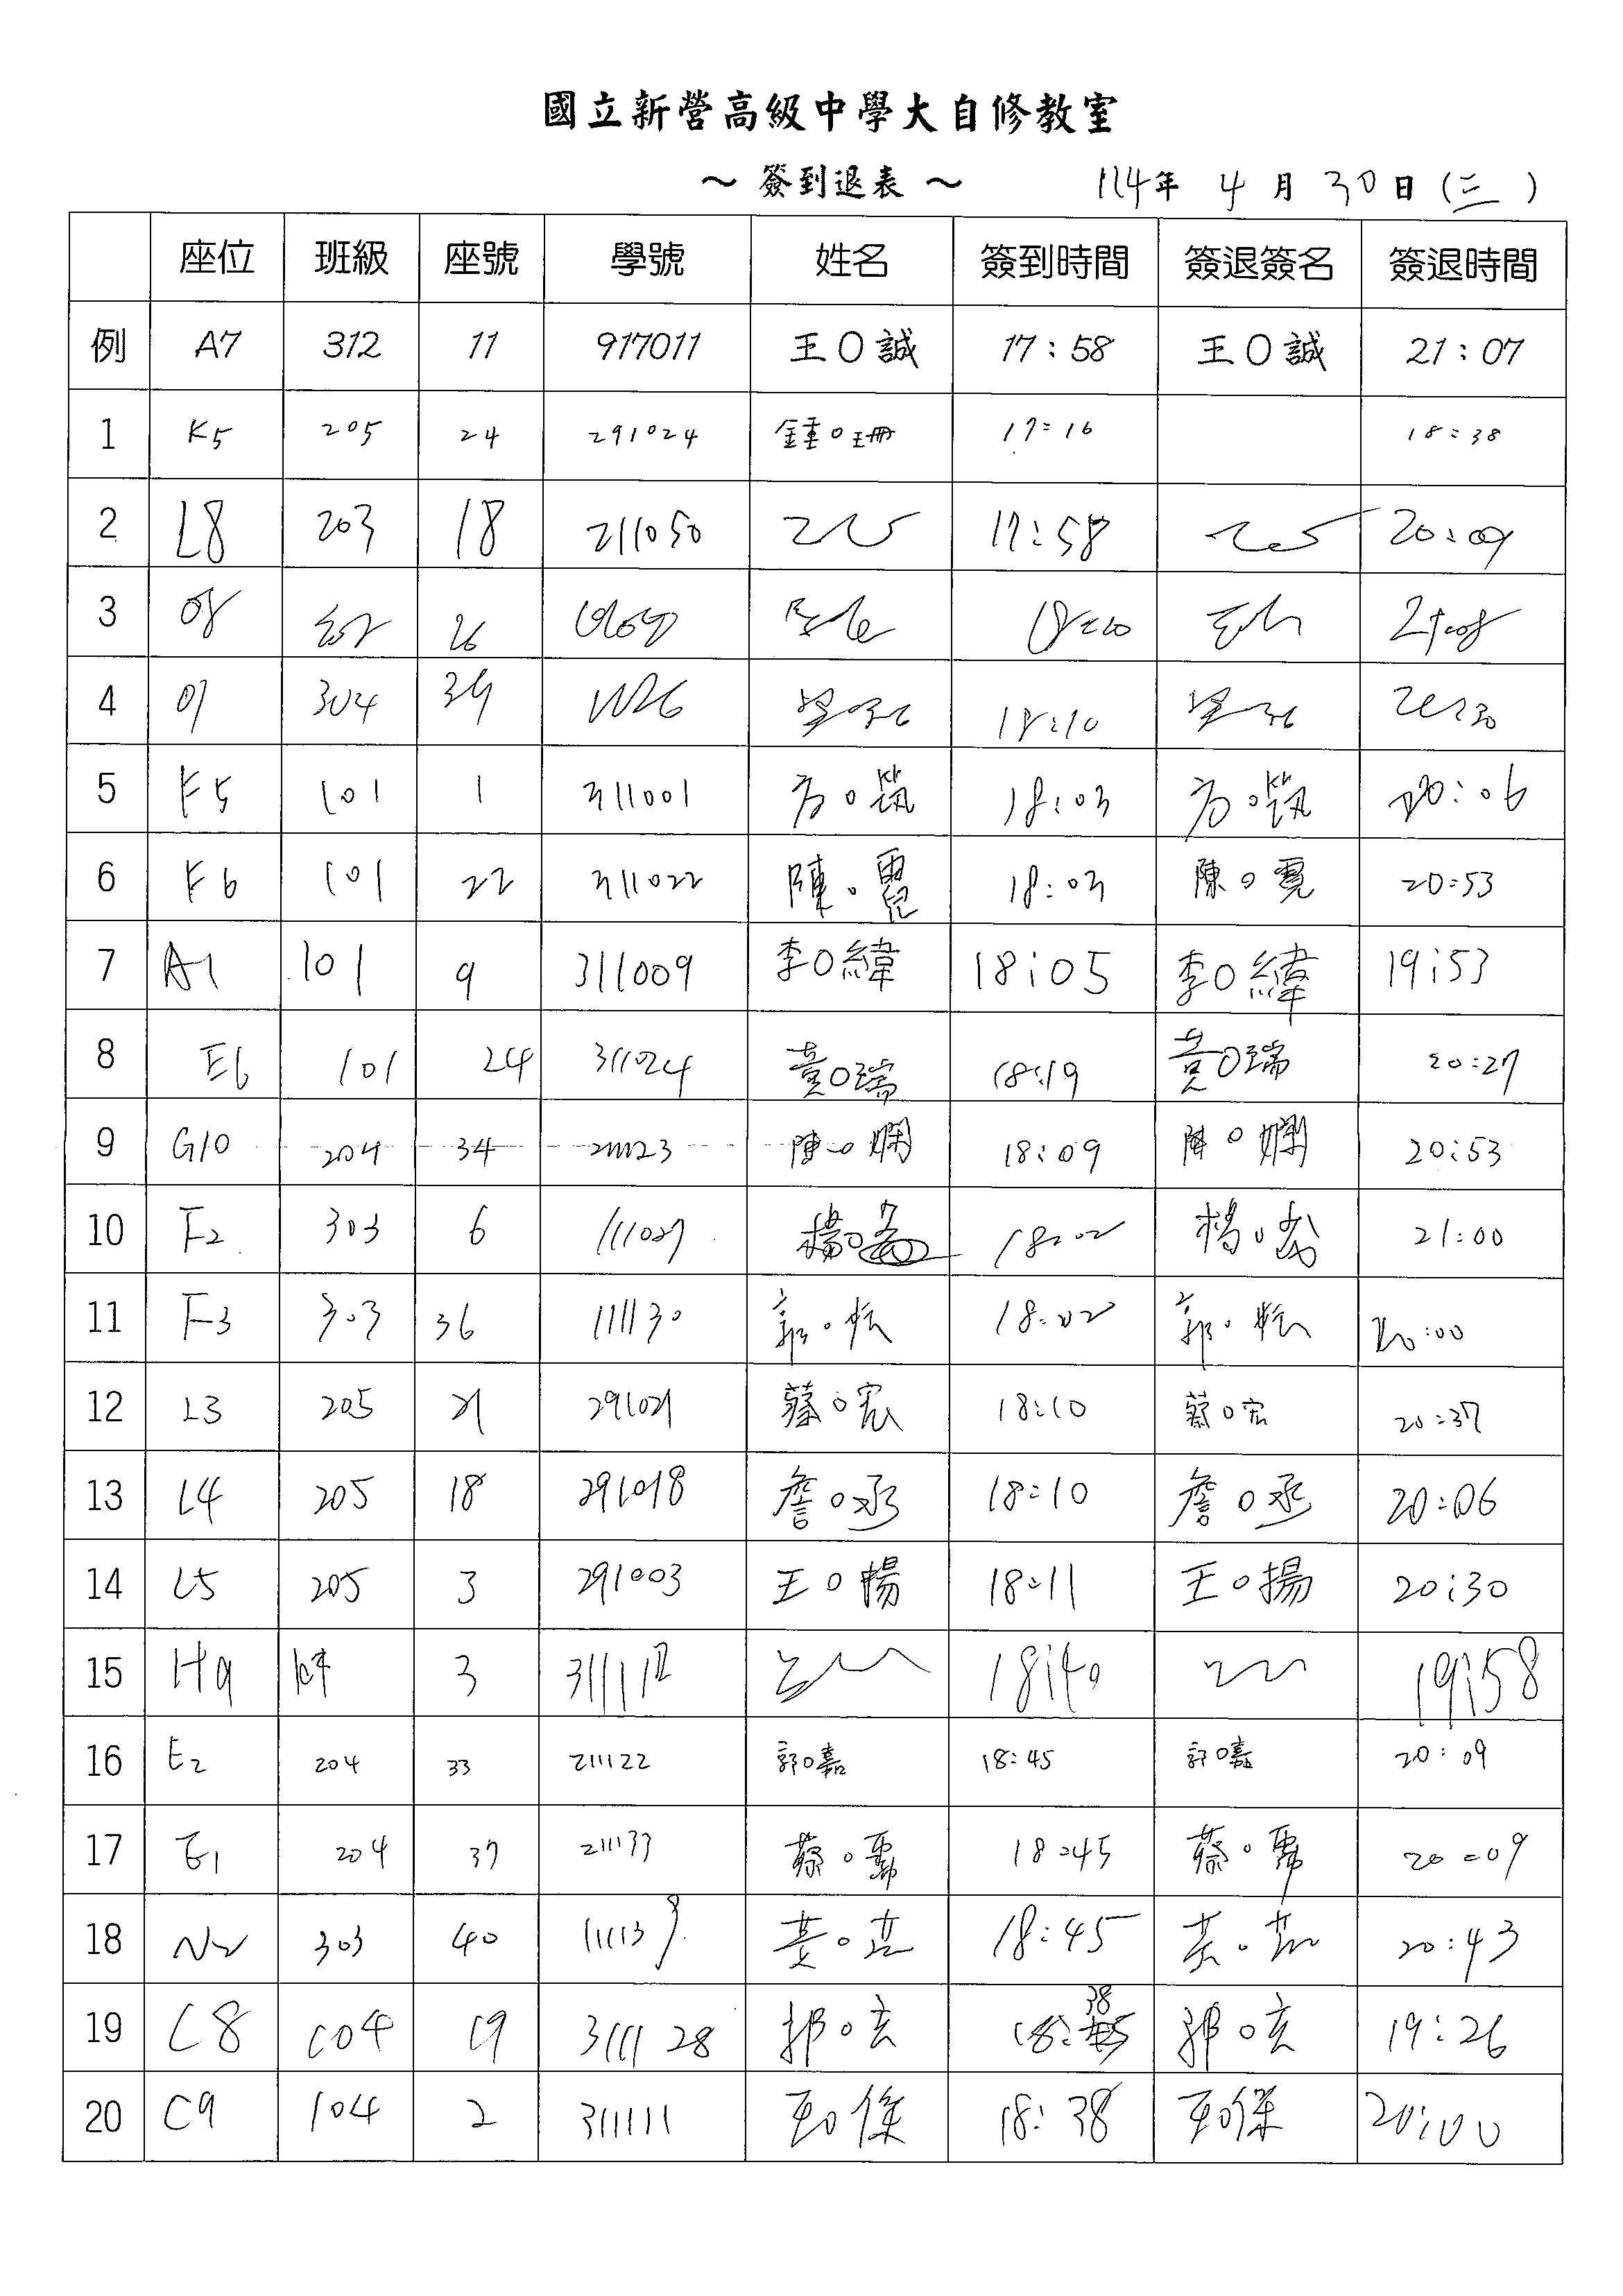 國立新營高級中學大自修教室
～ 簽到退表 ～ 114年 4 月 30 日 (三)
座位 班級 座號 學號 姓名 簽到時間 簽退簽名 簽退時間
例 A7 312 11 917011 王O誠 17:58 王O誠 21:07
1 K5 205 24 291024 鍾O珊 17:16 18:38
2 L8 203 18 211050 17:58 20:09
3 26
4 304 18:10
5 F5 101 1 311001 方O筑 18:03 方O筑 20:06
6 F6 101 22 311022 陳O 18:03 陳O 20:53
7 A1 101 9 311009 李O緯 18:05 李O緯 19:53
8 E6 101 24 311024 黃O瑞 18:19 黃O瑞 20:27
9 G10 204 34 211123 陳O嫻 18:09 陳O嫻 20:53
10 F2 303 6 111027 楊O 18:02 楊O 21:00
11 F3 303 36 111130 郭O 18:02 郭O 20:00
12 L3 205 21 291021 蔡O宏 18:10 蔡O宏 20:37
13 L4 205 18 291018 詹O丞 18:10 詹O丞 20:06
14 L5 205 3 291003 王O揚 18:11 王O揚 20:30
15 H9 3 311112 18:40 19:58
16 E2 204 33 211122 郭O嘉 18:45 郭O嘉 20:09
17 E1 204 37 211133 蔡O 18:45 蔡O 20:09
18 N2 303 40 111138 黃O 18:45 黃O 20:43
19 C8 104 19 311128 郭O玄 18:38 郭O玄 19:26
20 C9 104 2 311111 王O傑 18:38 王O傑 20:00